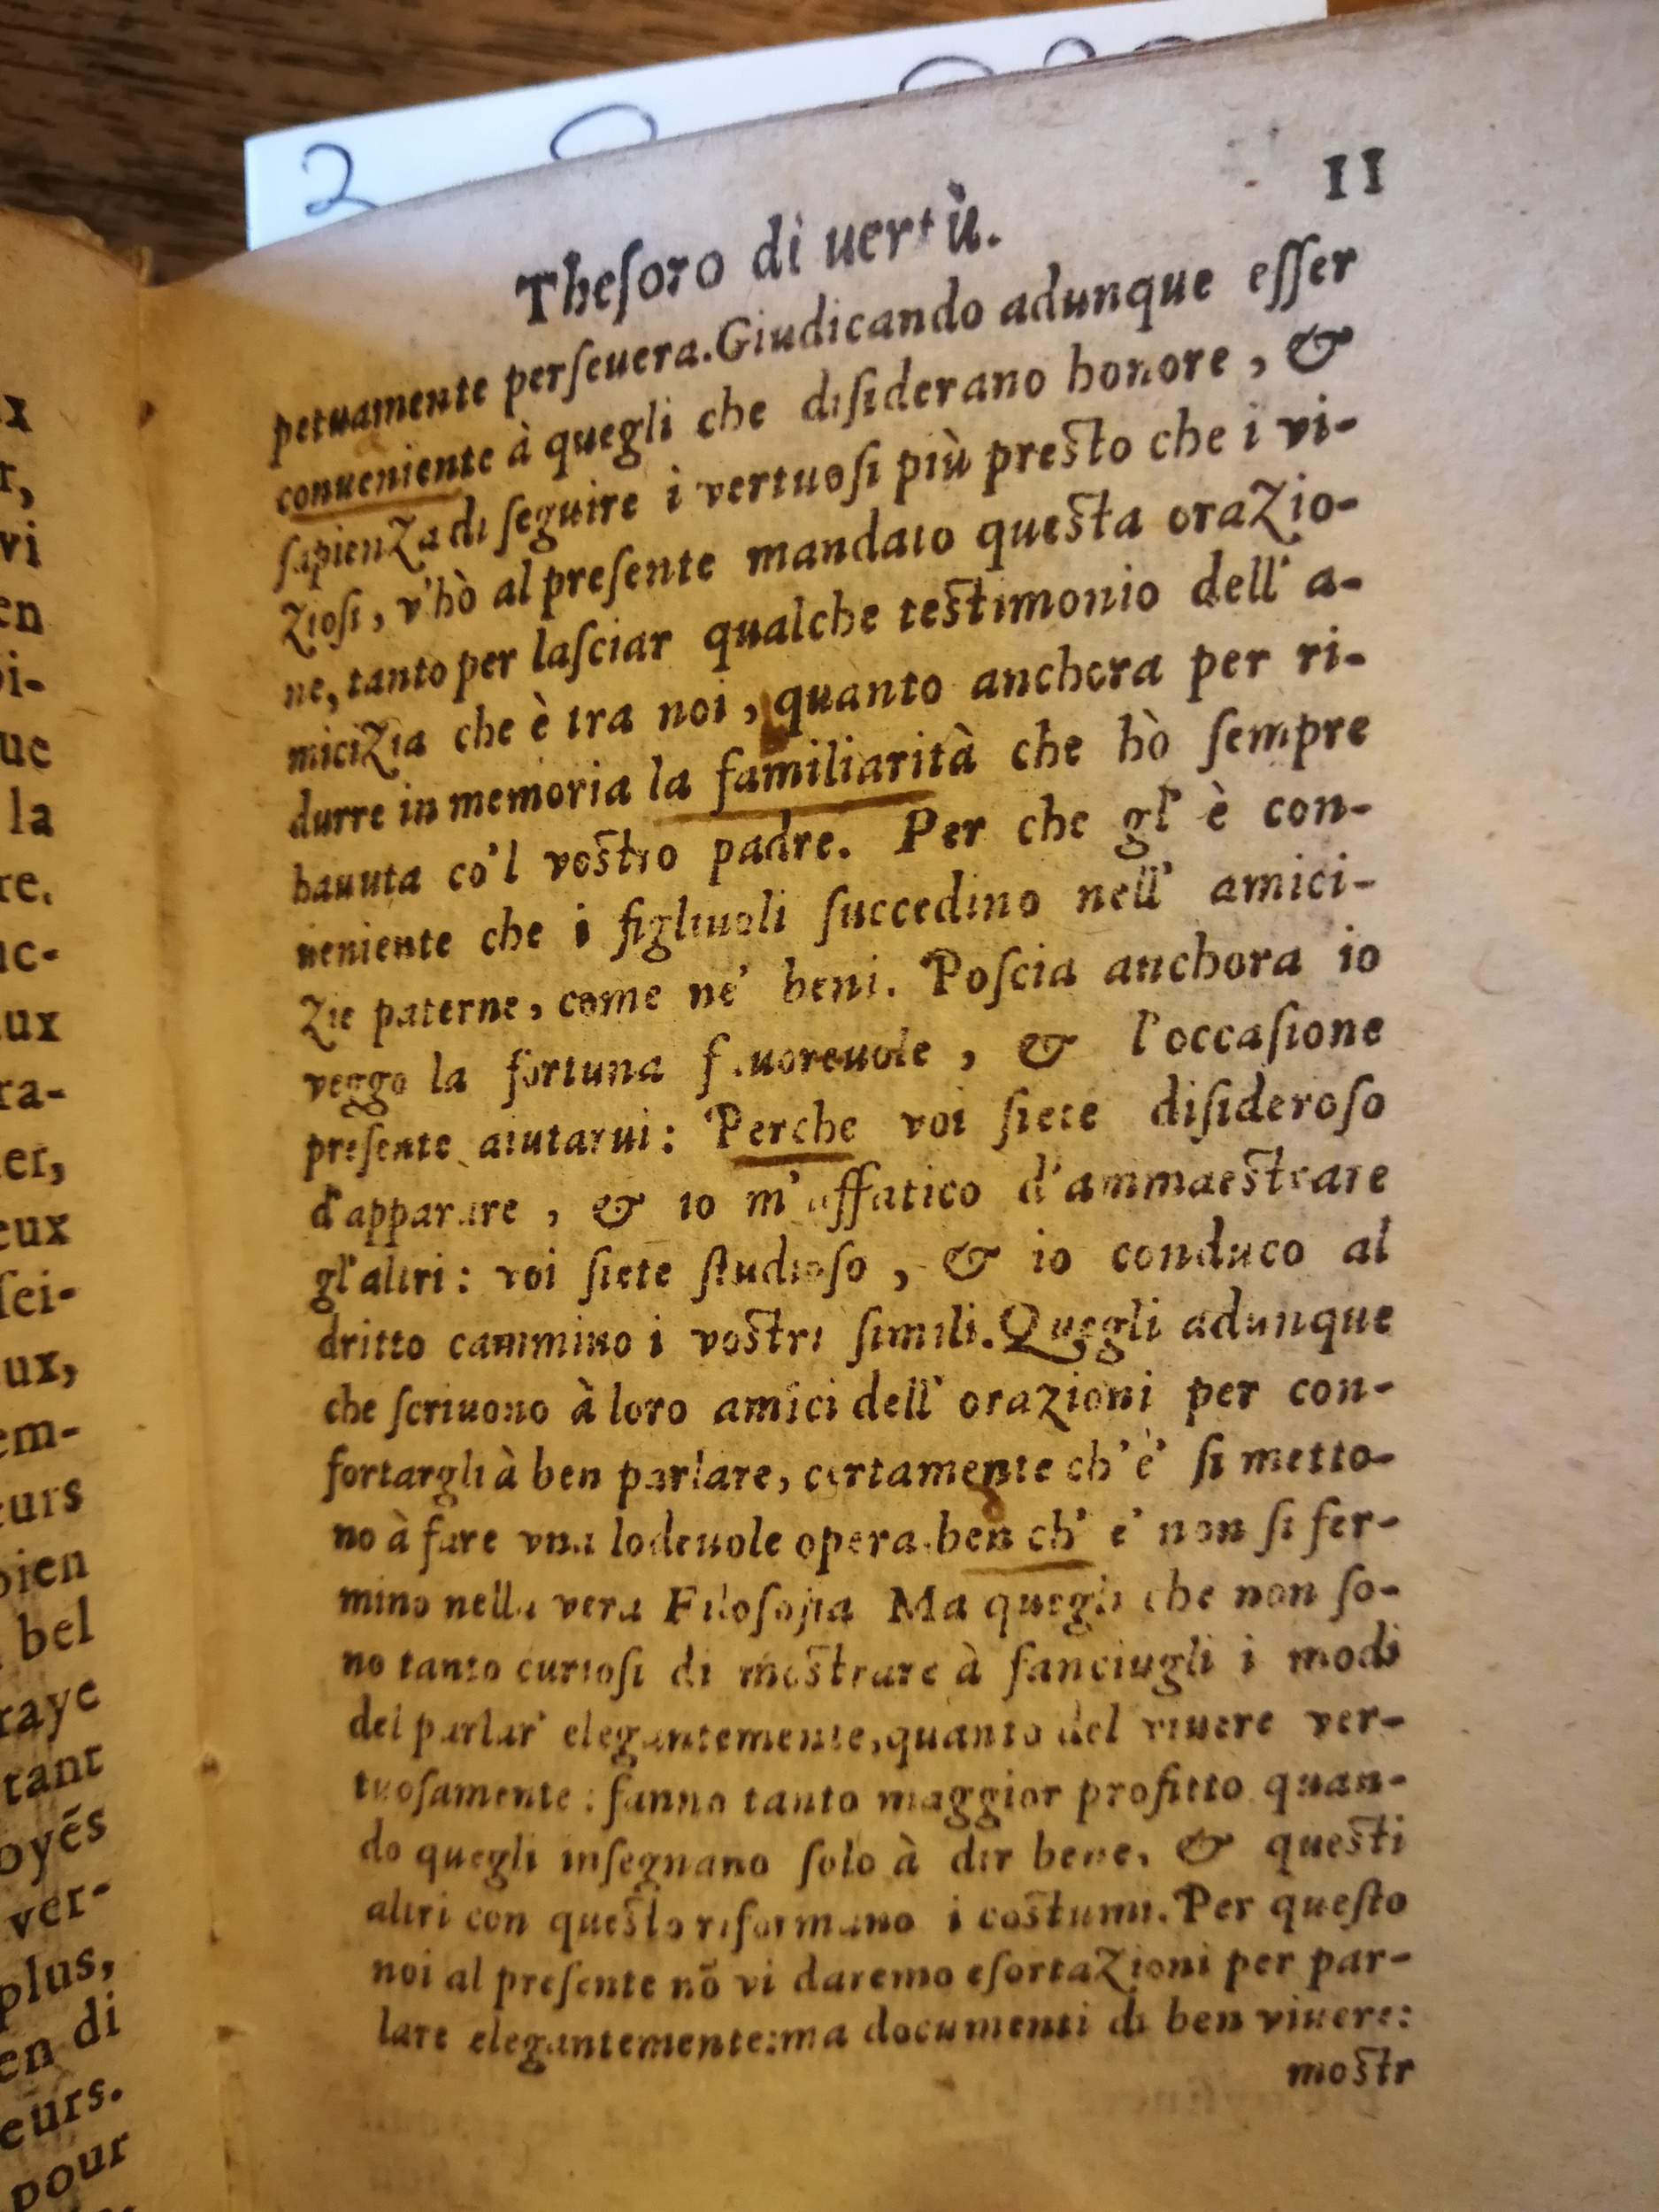 2
11
Thesoro di uertù.
petuamente perseuera. Giudicando adunque esser
conueniente à quegli che disiderano honore, &
sapienza di seguire i vertuosi più presto che i vi-
ziosi, v'hò al presente mandato questa orazio-
ne, tanto per lasciar qualche testimonio dell' a-
micizia che è tra noi, quanto anchora per ri-
durre in memoria la familiarità che hò sempre
hauuta co'l vostro padre. Per che gl' è con-
ueniente che i figliuoli succedino nell' amici-
zie paterne, come ne' beni. Poscia anchora io
veggo la fortuna fauoreuole, & l'occasione
presente aiutarui: Perche voi siete disideroso
d'apparare, & io m'affatico d'ammaestrare
gl'altri: voi siete studioso, & io conduco al
dritto cammino i vostri simili. Quegli adunque
che scriuono à loro amici dell' orazioni per con-
fortargli à ben parlare, certamente ch'e' si metto-
no à fare vna lodeuole opera. ben ch' e' non si fer-
mino nella vera Filosofia Ma quegli che non so-
no tanto curiosi di mostrare à fanciugli i modi
del parlar' elegantemente, quanto del viuere ver-
tuosamente: fanno tanto maggior profitto quan-
do quegli insegnano solo à dir bene, & questi
altri con questo riformano i costumi. Per questo
noi al presente nõ vi daremo esortazioni per par-
lare elegantemente: ma documenti di ben viuere:
mostr
x
r,
vi
en
oi-
ue
la
re.
uc-
ux
ra-
er,
eux
sei-
ux,
em-
eurs
bien
bel
raye
tant
oyés
ver-
plus,
en di
eurs.
pour